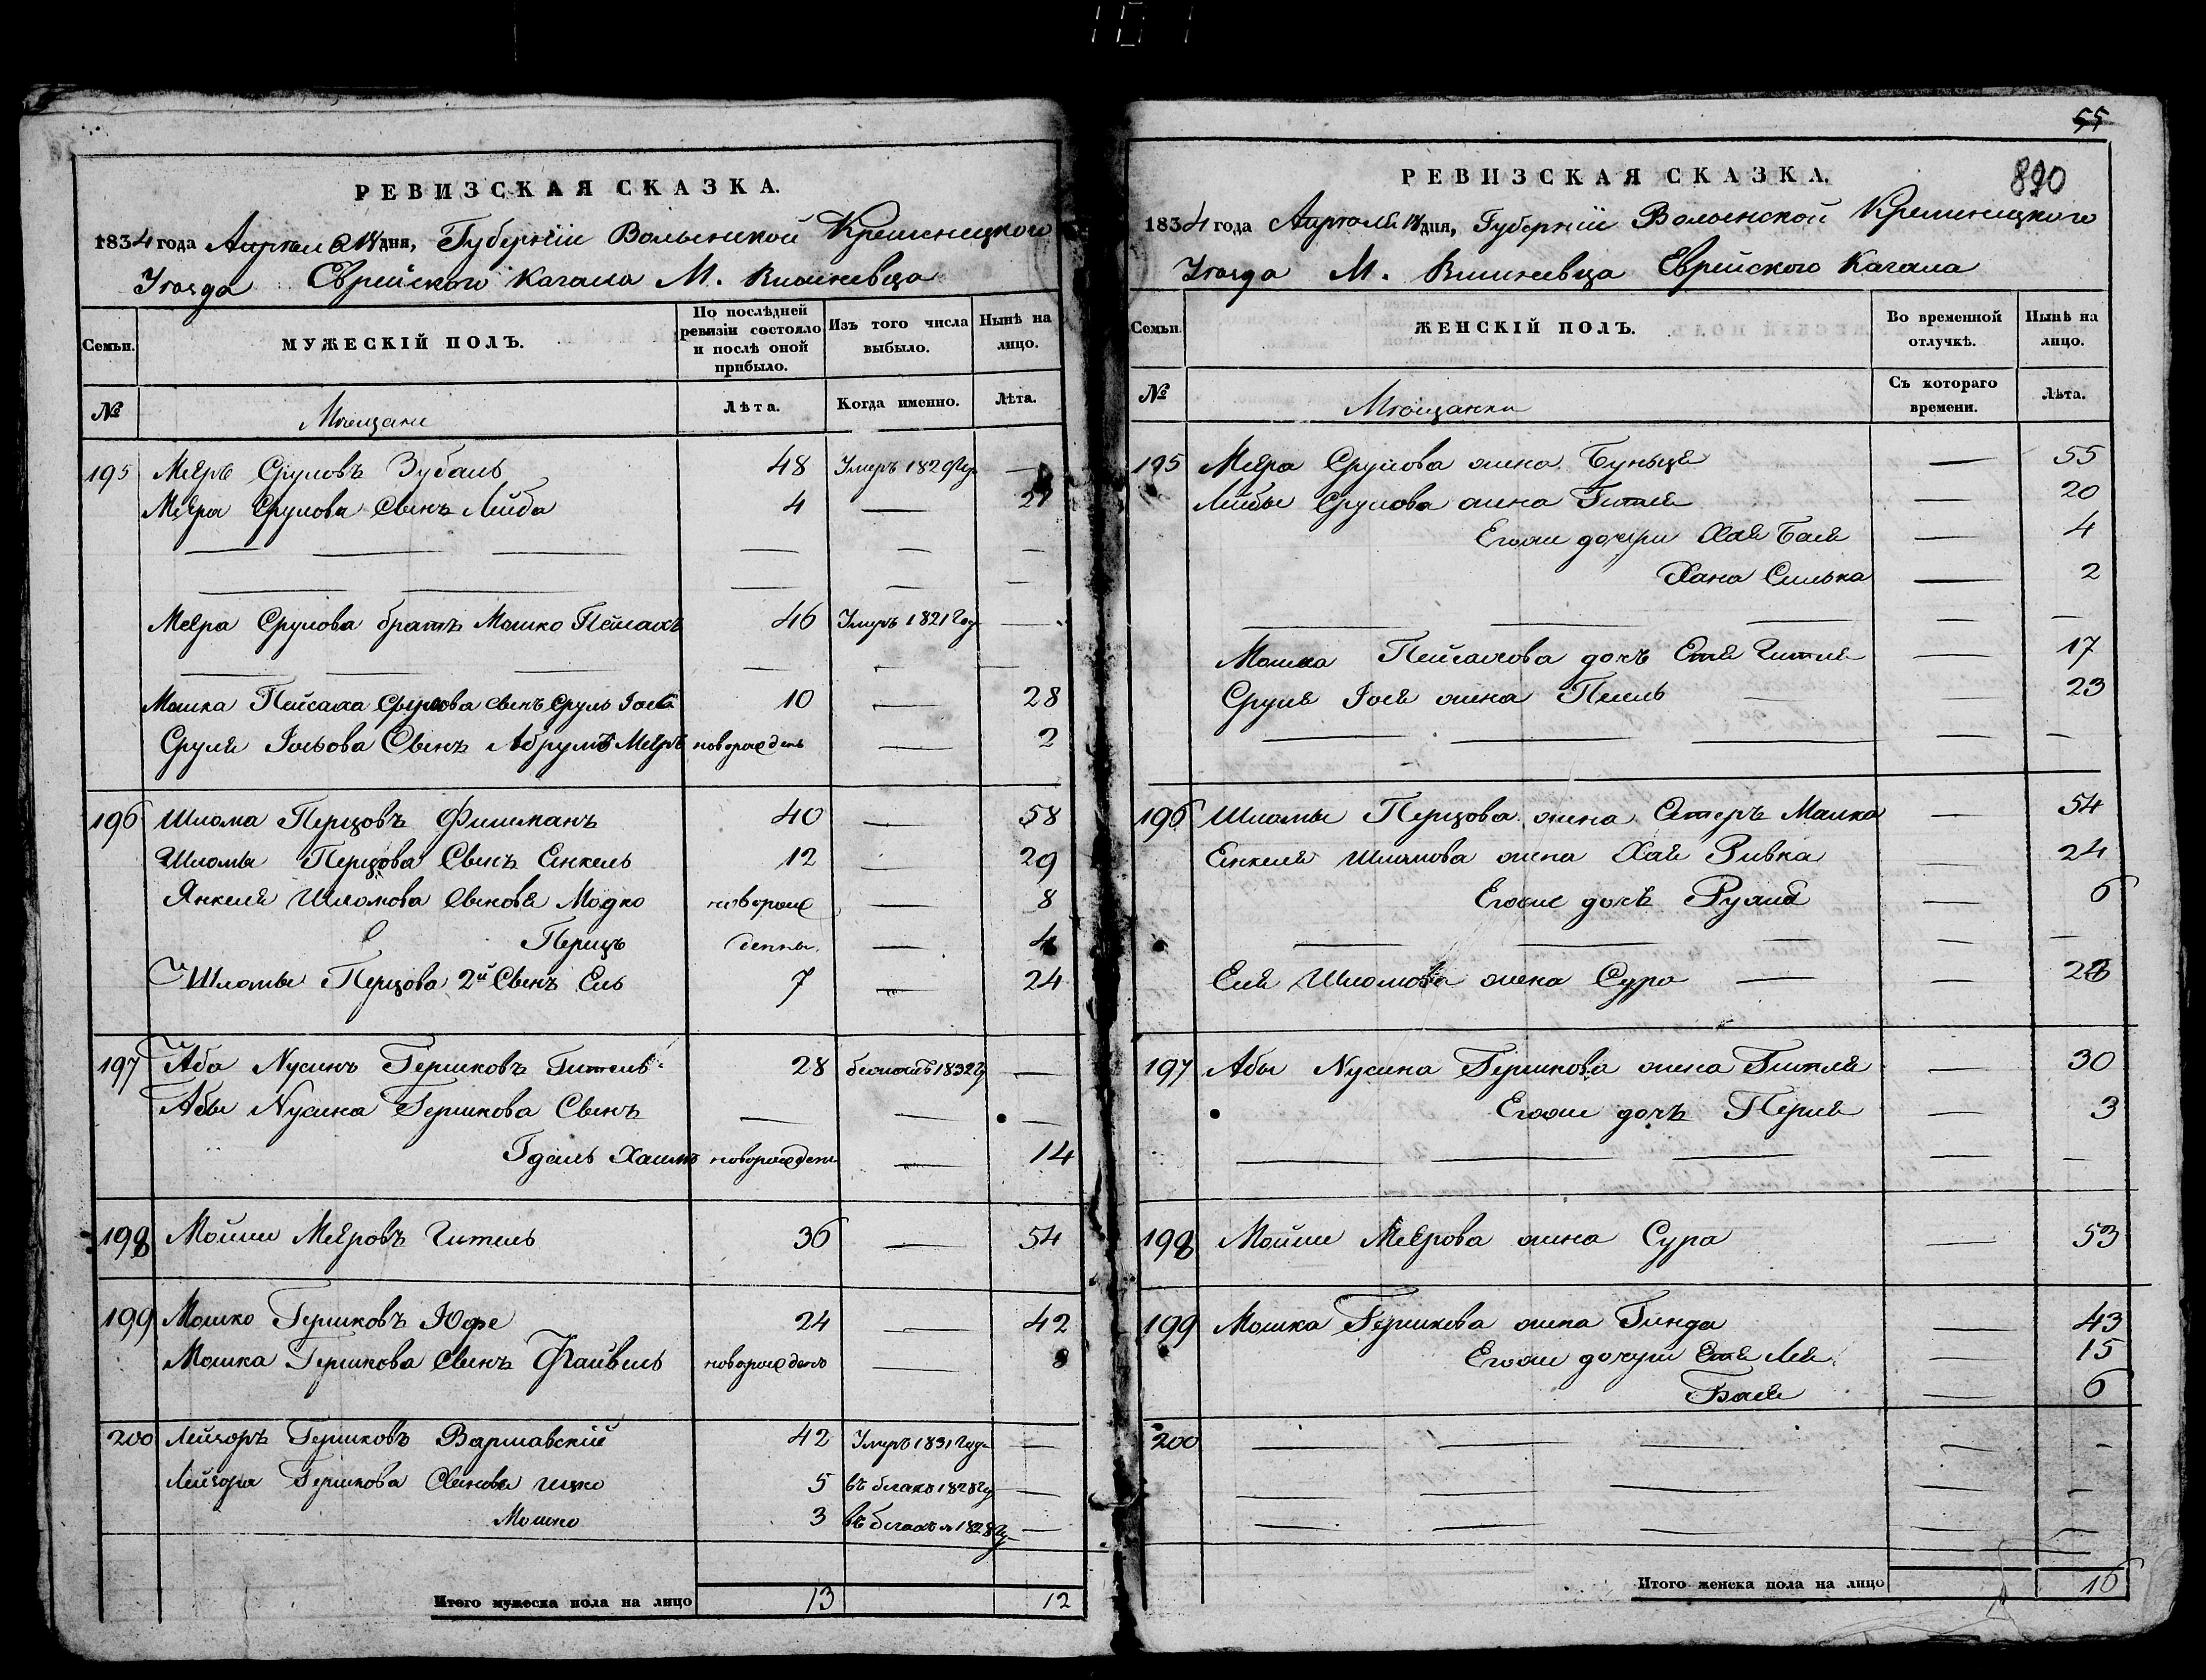 РЕВИЗСКАЯ СКАЗКА.
1834 года Апреля 18 дня, Губерніи Волынской Кременецкого
Уезда Еврейского Кагала М. Вишневца
Семьи.
МУЖЕСКІЙ ПОЛЪ.
По послѣдней ревизіи состояло и послѣ оной прибыло.
Изъ того числа выбыло.
Нынѣ на лицо.
№
Мещане
Лѣта.
Когда именно.
Лѣта.
195 Меѣръ Сруловъ Зубаль 48 Умеръ 1829 Году —
Меѣра Срулова Сынъ Лейба 4 — 21
Меѣра Срулова братъ Мошко Пейсахъ 46 Умеръ 1821 Году —
Мошка Пейсаха Срулова сынъ Сруль Іось 10 — 28
Сруля Іосьова Сынъ Абрумъ Меѣръ новорожденъ — 2
196 Шлома Перцовъ Фишманъ 40 — 58
Шломы Перцова Сынъ Енкель 12 — 29
Янкеля Шломова Сыновя Модко новорож — 8
Перецъ денны — 4
Шломы Перцова 2й Сынъ Ель 7 — 24
197 Аба Нусинъ Гершковъ Гитель 28 1832 —
Абы Нусина Гершкова Сынъ — — —
Гдаль Хаимъ новорожденъ — 14
198 Мойше Меѣровъ Гитель 36 — 54
199 Мошко Гершковъ Юфе 24 — 42
Мошка Гершкова Сынъ Файвель новорожденъ — 8
200 Лейзоръ Гершковъ Варшавскій 42 Умеръ 1831 Года —
Лейзора Гершкова Сыновя Ицко 5 въ бегахъ 1828 —
Мошко 3 въ бегахъ 1828 —
Итого мужеска пола на лицо 13 12
55
890
РЕВИЗСКАЯ СКАЗКА.
1834 года Апреля 18 дня, Губерніи Волынской Кременецкого
Уезда М. Вишневца Еврейского Кагала
Семьи.
ЖЕНСКІЙ ПОЛЪ.
Во временной отлучкѣ.
Нынѣ на лицо.
№
Мещанки
Съ котораго времени.
Лѣта.
195 Меѣра Срулова жена Буньця — 55
Лейбы Срулова жена Гитля — 20
Егоже дочери Хая Бася — 4
Хана Силька — 2
Мошка Пейсахова дочъ Етя Гитля — 17
Сруля Іося жена Песель — 23
196 Шломы Перцова жена Стеръ Малка — 54
Енкеля Шломова жена Хая Ривка — 24
Егоже дочъ Рухля — 6
Еля Шломова жена Сура — 23
197 Абы Нусина Гершкова жена Гитля — 30
Егоже дочъ Перля — 3
198 Мойше Меѣрова жена Сура — 53
199 Мошка Гершкова жена Гинда — 43
Егоже дочери Етя Лея — 15
Бася — 6
200 — — — — —
Итого женска пола на лицо 16